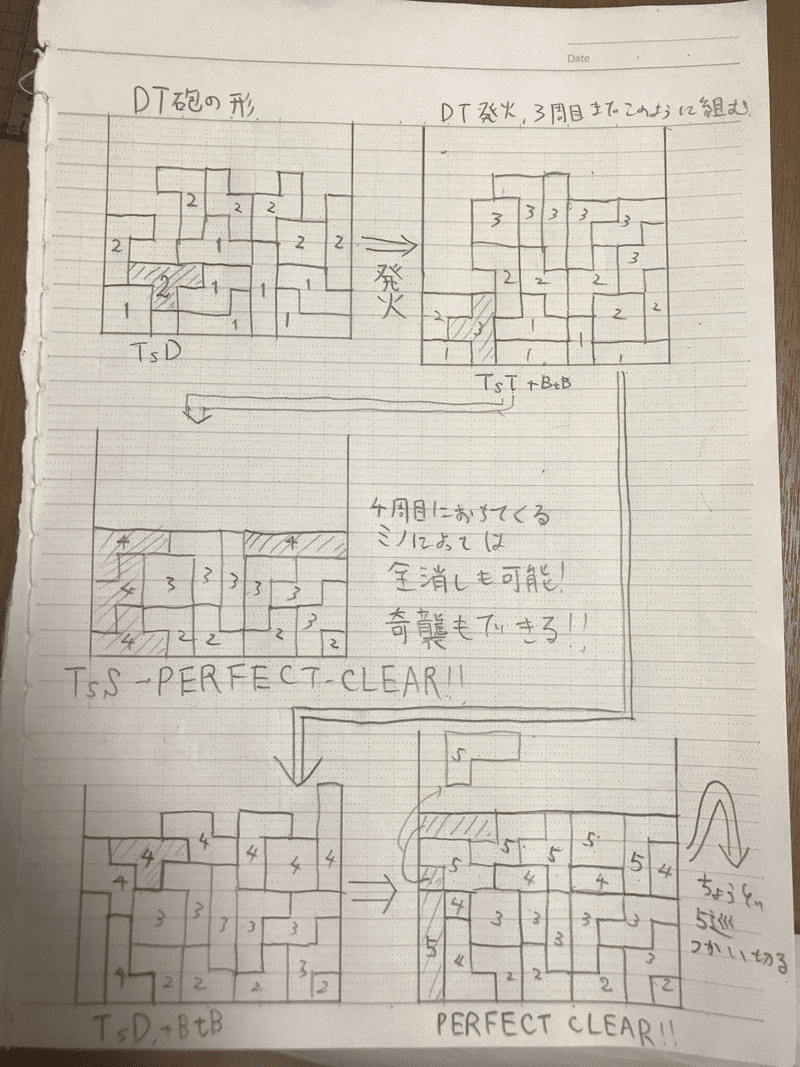 Date
DT砲の形
DT発火,3周目までこのように組む.
2
2
2
2
1
2
2
2
1
1
1
1
1
1
発火
3
3
3
3
3
3
2
2
2
2
3
1
1
2
2
1
1
1
TsD
TsT+BtB
4
4
4
3
3
3
3
3
3
4
2
2
2
2
4周目におちてくる
ミノによっては
全消しも可能!
奇襲もできる!!
TsS-PERFECT-CLEAR!!
4
4
4
4
4
4
3
3
3
3
3
4
2
2
2
3
2
5
5
5
5
5
5
4
4
4
4
3
3
3
3
3
5
4
3
2
2
2
2
ちょうど
5巡
つかい切る
TsD,+BtB
PERFECT CLEAR!!